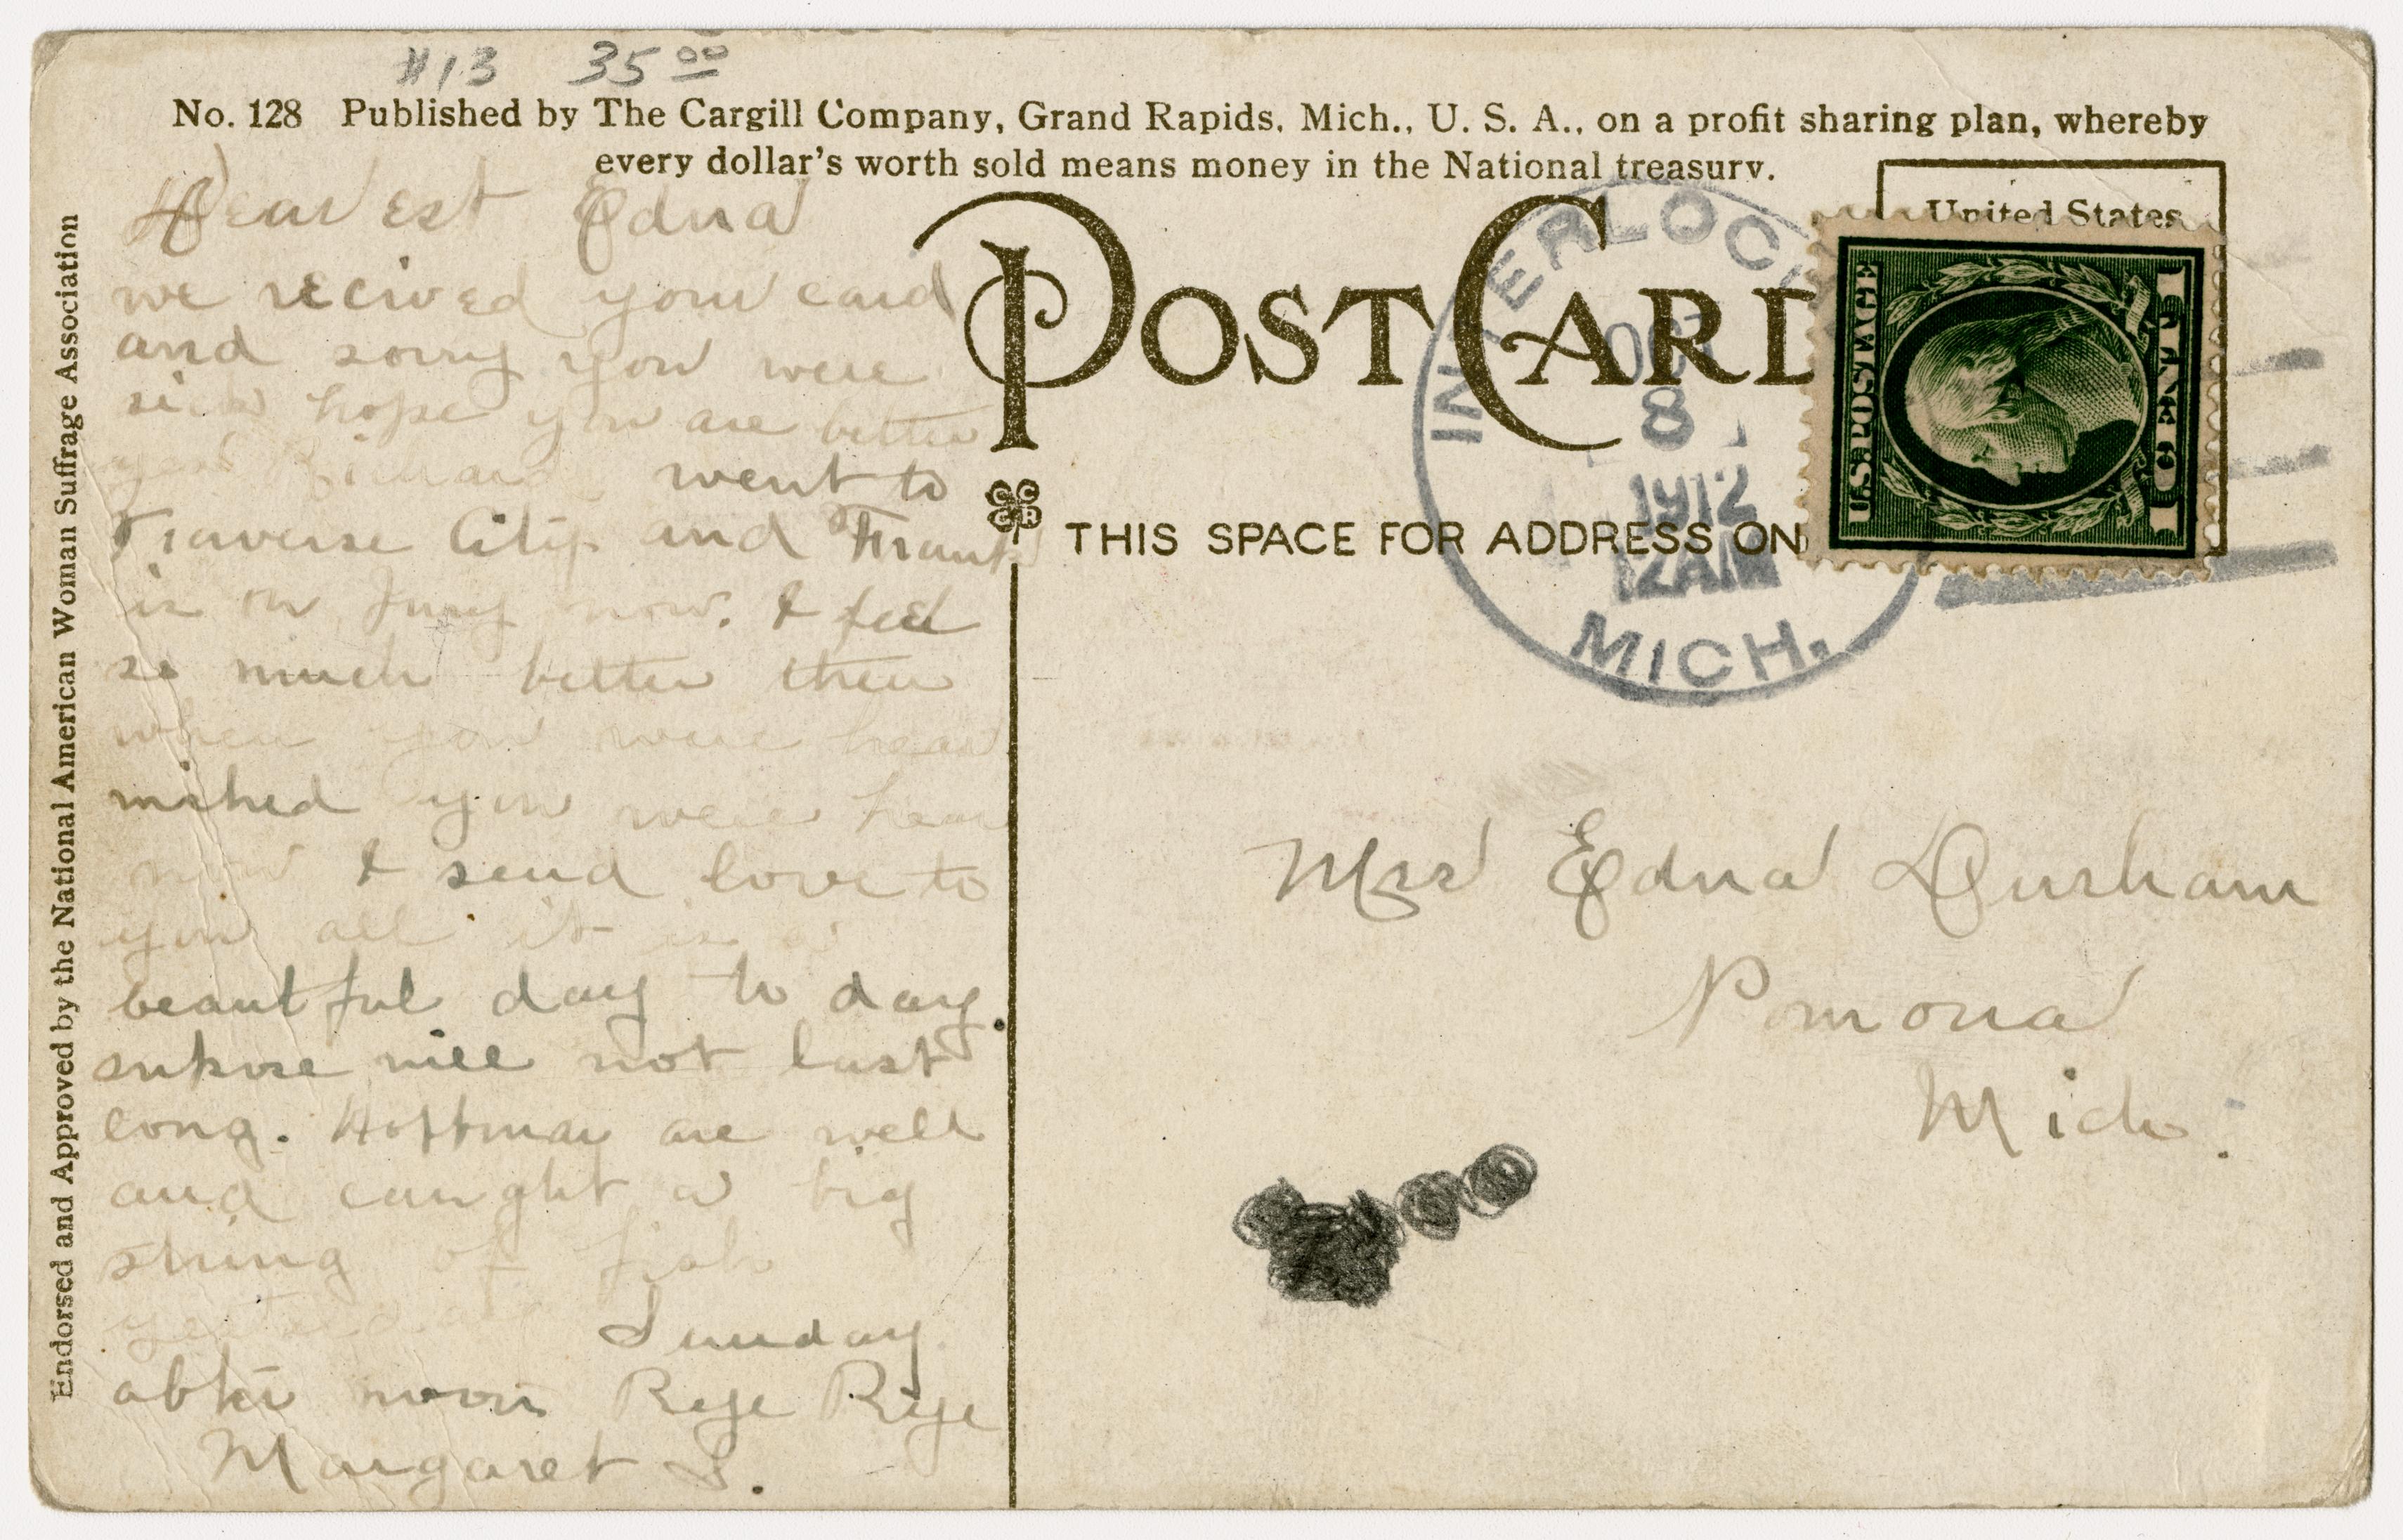 #13 35 00
No. 128 Published by The Cargill Company, Grand Rapids, Mich., U. S. A., on a profit sharing plan, whereby
every dollar's worth sold means money in the National treasury.
Endorsed and Approved by the National American Woman Suffrage Association
POST CARD
United States
THIS SPACE FOR ADDRESS ON
INTERLOCH
OCT
8
1912
12 AM
MICH.
U.S. POSTAGE
1 CENT 1
Dearest Edna
we recived your card
and sorry you were
sick hope you are better
went to
Traverse City and Frank
is on Jury now. I feel
so much better then
when you were hear
wished you were hear
now I send love to
you all it is a
beautful day to day.
supose will not last
long. Hoffman are well
and caught a big
string of fish
yesterday Sunday
after noon Bye Bye
Margaret S.
Mrs Edna Durham
Pomona
Mich.